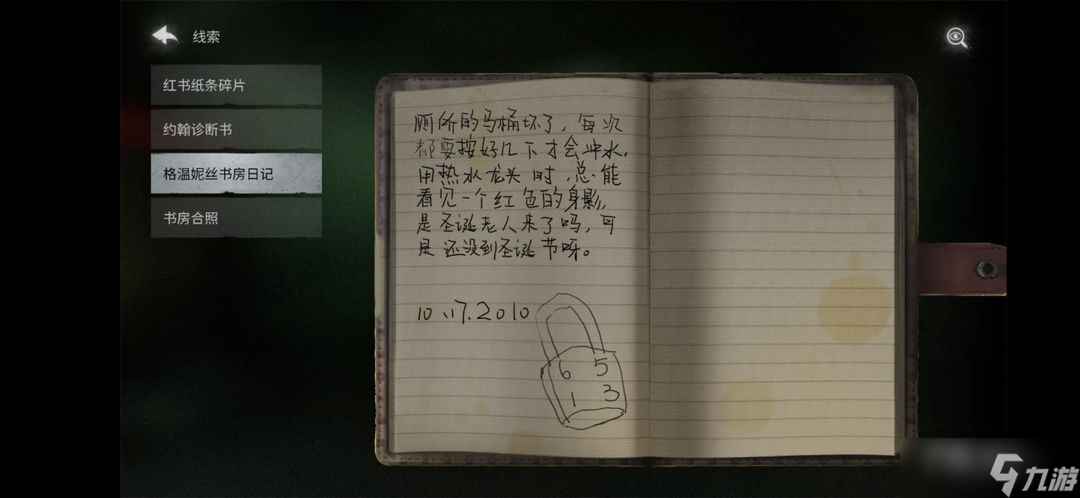 线索
红书纸条碎片
约翰诊断书
格温妮丝书房日记
书房合照
厕所的马桶坏了，每次
都要按好几下才会冲水，
用热水龙头时，总能
看见一个红色的身影，
是圣诞老人来了吗，可
是还没到圣诞节呀。
10.17.2010
6 5
1 3
九游